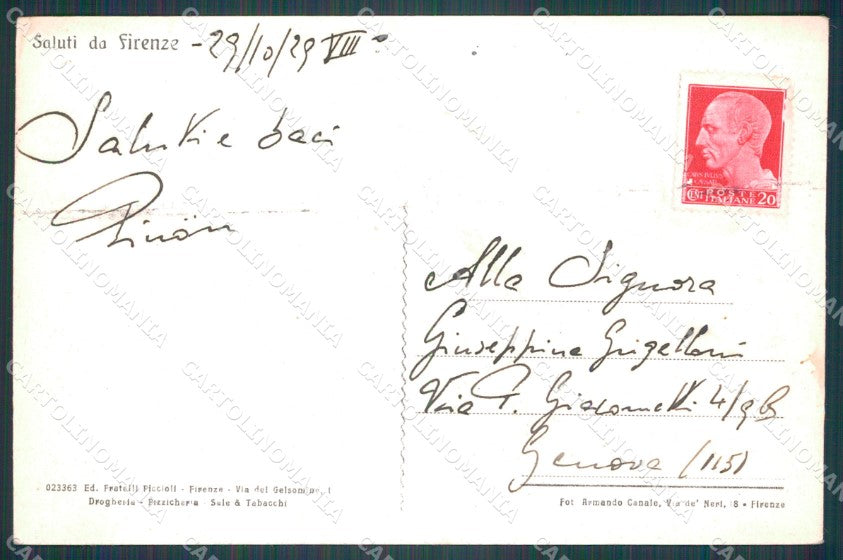 Saluti da Firenze - 29/10/29 VIII°
Saluti e baci
POSTE
CENT ITALIANE 20
Alla Signora
Giuseppina
Via P. Giacometti 4/9B
Genova (115)
023363 Ed. Fratelli Piccioli - Firenze - Via del
Drogheria - Pizzicheria - Sale & Tabacchi
Fot Armando Canale, Via de' Neri, 8 • Firenze
CARTOLINOMANIA